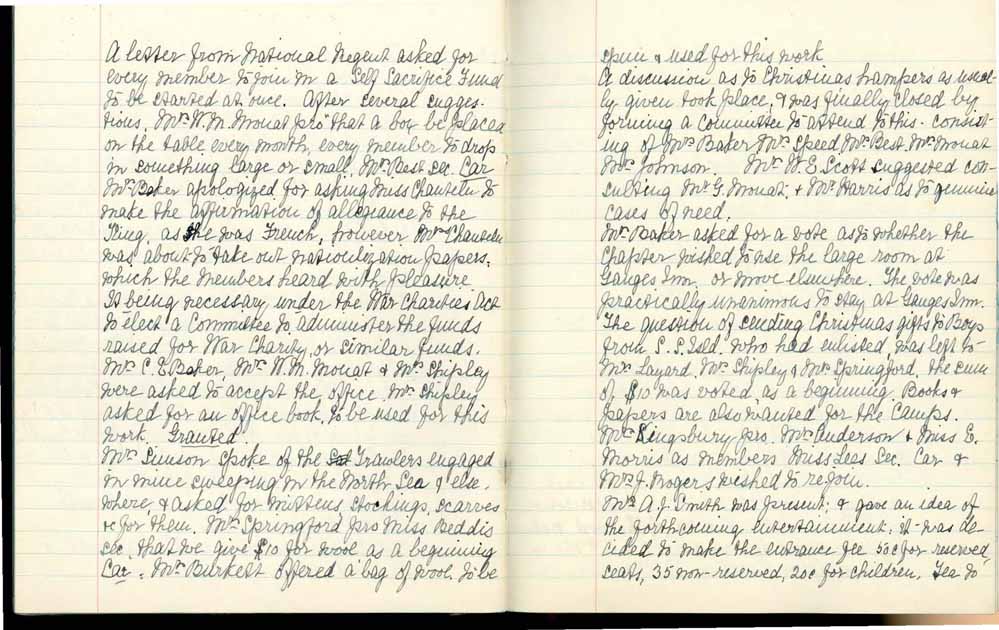 A letter from National Regent asked for
every member to join in a Self Sacrifice Fund
to be started at once. After several sugges-
tions, Mrs W. M. Mouat pro that a box be placed
on the table every month, every member to drop
in something large or small, Mrs Best sec. Car
Mrs Baker apologized for asking Miss Chantelu to
make the affirmation of allegiance to the
King, as she was French, however Mrs Chantelu
was about to take out nationilization papers,
which the members heard with pleasure.
It being necessary under the War Charities Act
to elect a Committee to administer the funds
raised for War Charity, or similar funds.
Mrs C. E. Baker, Mrs W. M. Mouat & Mrs Shipley
were asked to accept the office. Mrs Shipley
asked for an office book to be used for this
work. Granted.
Mrs Simson spoke of the Trawlers engaged
in mine sweeping in the North Sea & else-
where, & asked for mittens stockings, scarves
&c for them. Mrs Springford pro Miss Beddis
sec. that we give $10 for wool as a beginning
Car. Mrs Burkett offered a bag of wool to be
spun & used for this work
A discussion as to Christmas hampers as usual-
ly given took place, & was finally closed by
forming a committee to attend to this. consist-
ing of Mrs Baker Mrs Speed Mrs Best, Mrs Mouat
Mrs Johnson. Mrs W. E. Scott suggested con-
sulting Mr G. Mouat, & Mr Harris as to genuine
cases of need.
Mrs Baker asked for a vote as to whether the
Chapter wished to use the large room at
Ganges Inn, or move elsewhere. The vote was
practically unanimous to stay at Ganges Inn.
The question of sending Christmas gifts to Boys
from S. S. Isld. who had enlisted, was left to
Mrs Layard, Mrs Shipley & Mrs Springford, the sum
of $10 was voted as a beginning. Books &
papers are also wanted for the Camps.
Mrs Kingsbury pro. Mrs Anderson & Miss E.
Morris as members Miss Lees Sec. Car &
Mrs J. Rogers wished to rejoin.
Mrs A. J. Smith was present; & gave an idea of
the forthcoming entertainment; it was de-
cided to make the entrance fee 50c for reserved
seats, 35 non-reserved, 20c for children. Tea to